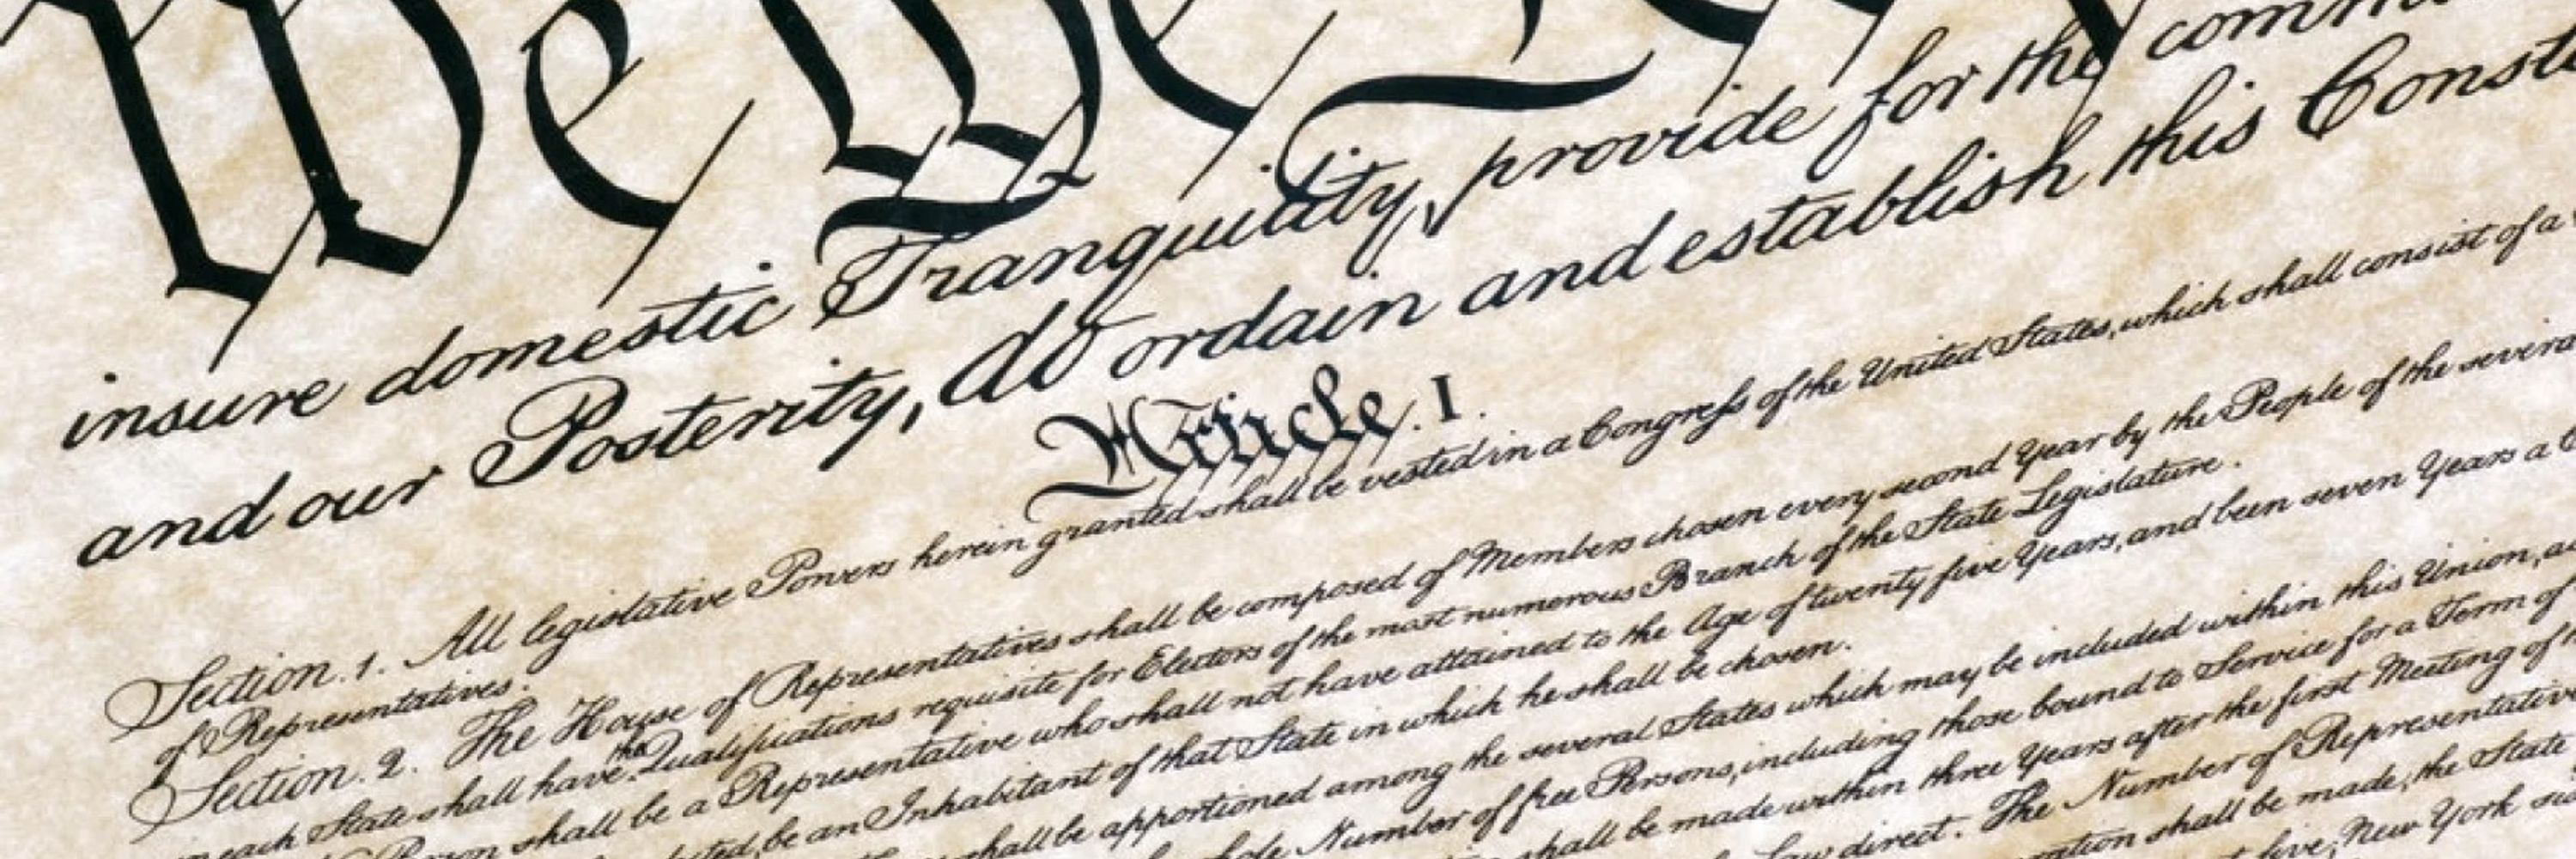 We the
insure domestic Tranquility, provide for the comm
and our Posterity, do ordain and establish this Const
Article. I.
Section. 1. All legislative Powers herein granted shall be vested in a Congress of the United States, which shall consist of a
of Representatives.
Section. 2. The House of Representatives shall be composed of Members chosen every second Year by the People of the severa
each State shall have the Qualifications requisite for Electors of the most numerous Branch of the State Legislature.
Person shall be a Representative who shall not have attained to the Age of twenty five Years, and been seven Years a
be an Inhabitant of that State in which he shall be chosen.
shall be apportioned among the several States which may be included within this Union, a
Number of free Persons, including those bound to Service for a Term of
shall be made within three Years after the first Meeting of
Law direct. The Number of Representative
shall be made, the State
five, New York